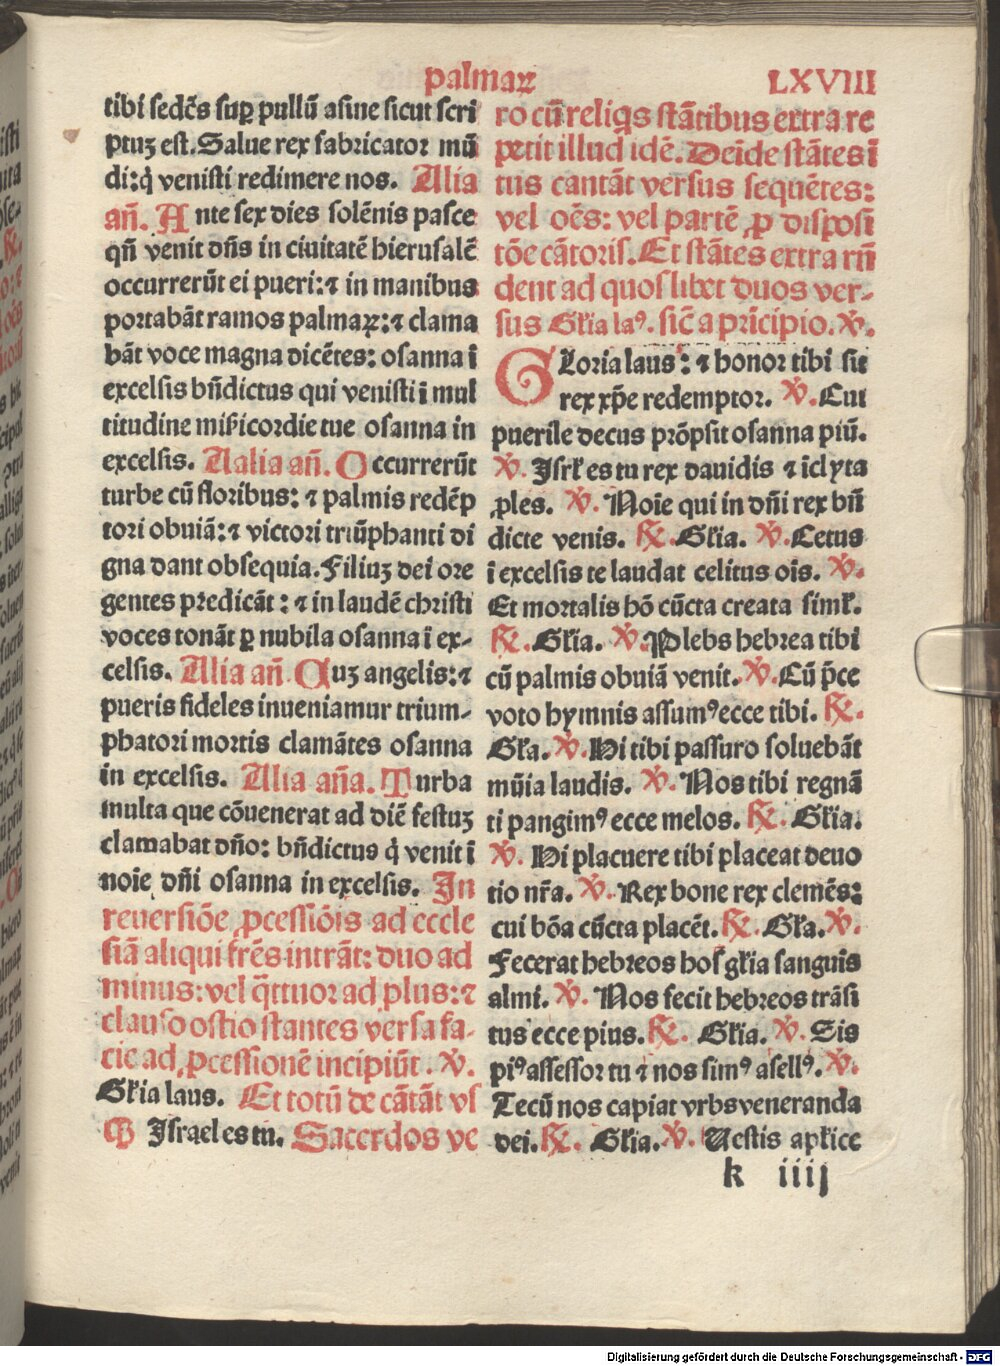 palmaꝝ LXVIII
tibi sedēs suꝑ pullū asine sicut scri
ptuꝫ est. Salue rex fabricator mū
di: q̇ venisti redimere nos. Alia
an̄. Ante sex dies solēnis pasce
qn̄ venit dn̄s in ciuitatē hierusalē
occurrerūt ei pueri: ⁊ in manibus
portabāt ramos palmaꝝ: ⁊ clama
bāt voce magna dicētes: osanna ī
excelsis bn̄dictus qui venisti ī mul
titudine mīcordie tue osanna in
excelsis. Aalia an̄. Occurrerūt
turbe cū floribus: ⁊ palmis redēp
tori obuiā: ⁊ victori triūphanti di
gna dant obsequia. Filiuꝫ dei ore
gentes predicāt: ⁊ in laudē christi
voces tonāt ꝑ nubila osanna ī ex-
celsis. Alia an̄ Cuꝫ angelis: ⁊
pueris fideles inueniamur trium-
phatori mortis clamātes osanna
in excelsis. Alia an̄a. Turba
multa que cōuenerat ad diē festuꝫ
clamabat dn̄o: bn̄dictus q̇ venit ī
noīe dn̄i osanna in excelsis. In
reuersiōe ꝓcessiōis ad eccle
siā aliqui fr̄es intrāt: duo ad
minus: vel q̄ttuor ad plus: ⁊
clauso ostio stantes versa fa-
cie ad ꝓcessionē incipiūt. ℣.
Gl̄ia laus. Et totū de cātāt vl
℟ Israel es tu. Sacerdos ve
ro cū reliq̇s stātibus extra re
petit illud idē. Deīde stātes ī
tus cantāt versus sequētes:
vel oēs: vel partē ꝓ disposi
tōe cātoris. Et stātes extra rn̄
dent ad quoslibet duos ver-
sus Gl̄ia laꝰ. sic̄ a prīcipio. ℣.
Gloria laus: ⁊ honor tibi sit
rex xp̄e redemptor. ℣. Cui
puerile decus prōpsit osanna piū.
℣. Isrl̄ es tu rex dauidis ⁊ īclyta
ꝓles. ℣. Noīe qui in dn̄i rex bn̄
dicte venis. ℟. Gl̄ia. ℣. Cetus
ī excelsis te laudat celitus oīs. ℣.
Et mortalis hō cūcta creata siml̄.
℟. Gl̄ia. ℣. Plebs hebrea tibi
cū palmis obuiā venit. ℣. Cū p̄ce
voto hymnis assumꝰ ecce tibi. ℟.
Gl̄a. ℣. Hi tibi passuro soluebāt
mūia laudis. ℣. Nos tibi regnā
ti pangimꝰ ecce melos. ℟. Gl̄ia.
℣. Hi placuere tibi placeat deuo
tio nr̄a. ℣. Rex bone rex clemēs:
cui bōa cūcta placēt. ℟. Gl̄a. ℣.
Fecerat hebreos hos gl̄ia sanguis
almi. ℣. Nos fecit hebreos trāsi
tus ecce pius. ℟. Gl̄ia. ℣. Sis
piꝰ assessor tu ⁊ nos simꝰ asellꝰ. ℣.
Tecū nos capiat vrbs veneranda
dei. ℟. Gl̄ia. ℣. Uestis apl̄ice
k iiij
Digitalisierung gefördert durch die Deutsche Forschungsgemeinschaft - DFG